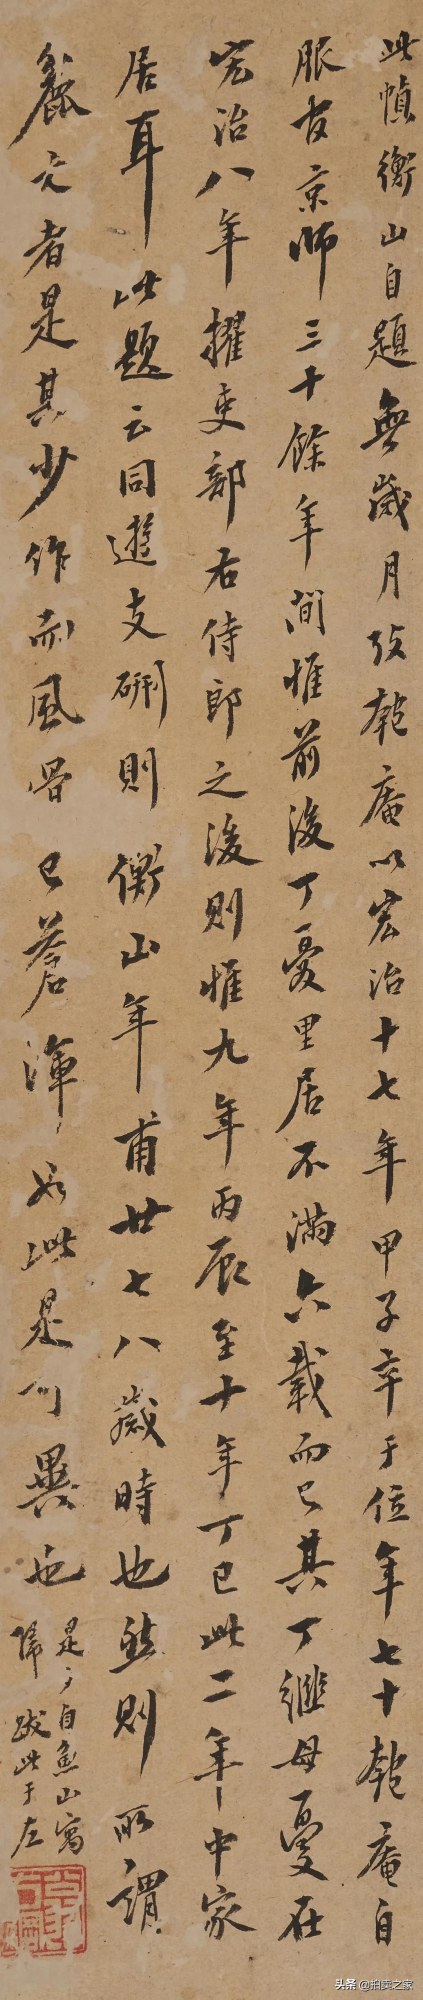 此幀衡山自題無歲月攷匏庵以宏治十七年甲子卒于位年七十匏庵自
服官京師三十餘年間惟前後丁憂里居不滿六載而已其丁繼母憂在
宏治八年擢吏部右侍郎之後則惟九年丙辰至十年丁巳此二年中家
居耳此題云同遊支硎則衡山年甫廿七八歲時也然則所謂
麤文者是其少作而風骨已蒼渾如此是可異也
是夕自魚山寓
歸跋此于左
头条@拍卖之家